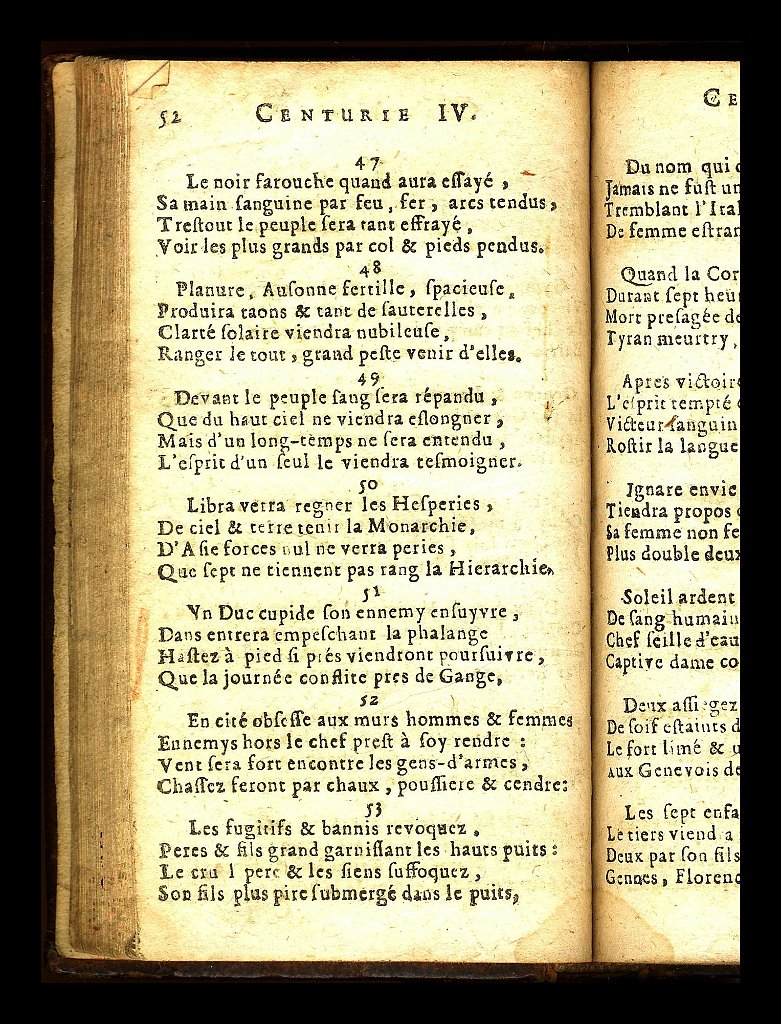 52 CENTURIE IV.
47
Le noir farouche quand aura eſſayé ,
Sa main ſanguine par feu , fer , arcs tendus ,
Treſtout le peuple ſera tant effrayé ,
Voir les plus grands par col & pieds pendus.
48
Planure , Auſonne fertille , ſpacieuſe ,
Produira taons & tant de ſauterelles ,
Clarté ſolaire viendra nubileuſe ,
Ranger le tout , grand peſte venir d'elles.
49
Devant le peuple ſang ſera répandu ,
Que du haut ciel ne viendra eſlongner ,
Mais d'un long-temps ne ſera entendu ,
L'eſprit d'un ſeul le viendra teſmoigner.
50
Libra verra regner les Heſperies ,
De ciel & terre tenir la Monarchie ,
D'Aſie forces nul ne verra peries ,
Que ſept ne tiennent pas rang la Hierarchie.
51
Vn Duc cupide ſon ennemy enſuyvre ,
Dans entrera empeſchant la phalange
Haſtez à pied ſi prés viendront pourſuivre ,
Que la journée conflite pres de Gange,
52
En cité obſeſſe aux murs hommes & femmes
Ennemys hors le chef preſt à ſoy rendre :
Vent ſera fort encontre les gens-d'armes ,
Chaſſez ſeront par chaux , pouſſiere & cendre:
53
Les fugitifs & bannis revoquez ,
Peres & fils grand garniſſant les hauts puits :
Le cru l pere & les ſiens ſuffoquez ,
Son fils plus pire ſubmergé dans le puits,
CE
Du nom qui
Jamais ne fuſt un
Tremblant l'Ital
De femme eſtran
Quand la Cor
Durant ſept heu
Mort preſagée de
Tyran meurtry ,
Apres victoire
L'eſprit tempté
Victeur ſanguin
Roſtir la langue
Ignare envie
Tiendra propos
Sa femme non fe
Plus double deux
Soleil ardent
De ſang humain
Chef ſeille d'eau
Captive dame co
Deux aſſiegez
De ſoif eſtaints d
Le fort limé & u
aux Genevois de
Les ſept enfa
Le tiers viend a
Deux par ſon fils
Gennes , Florenc